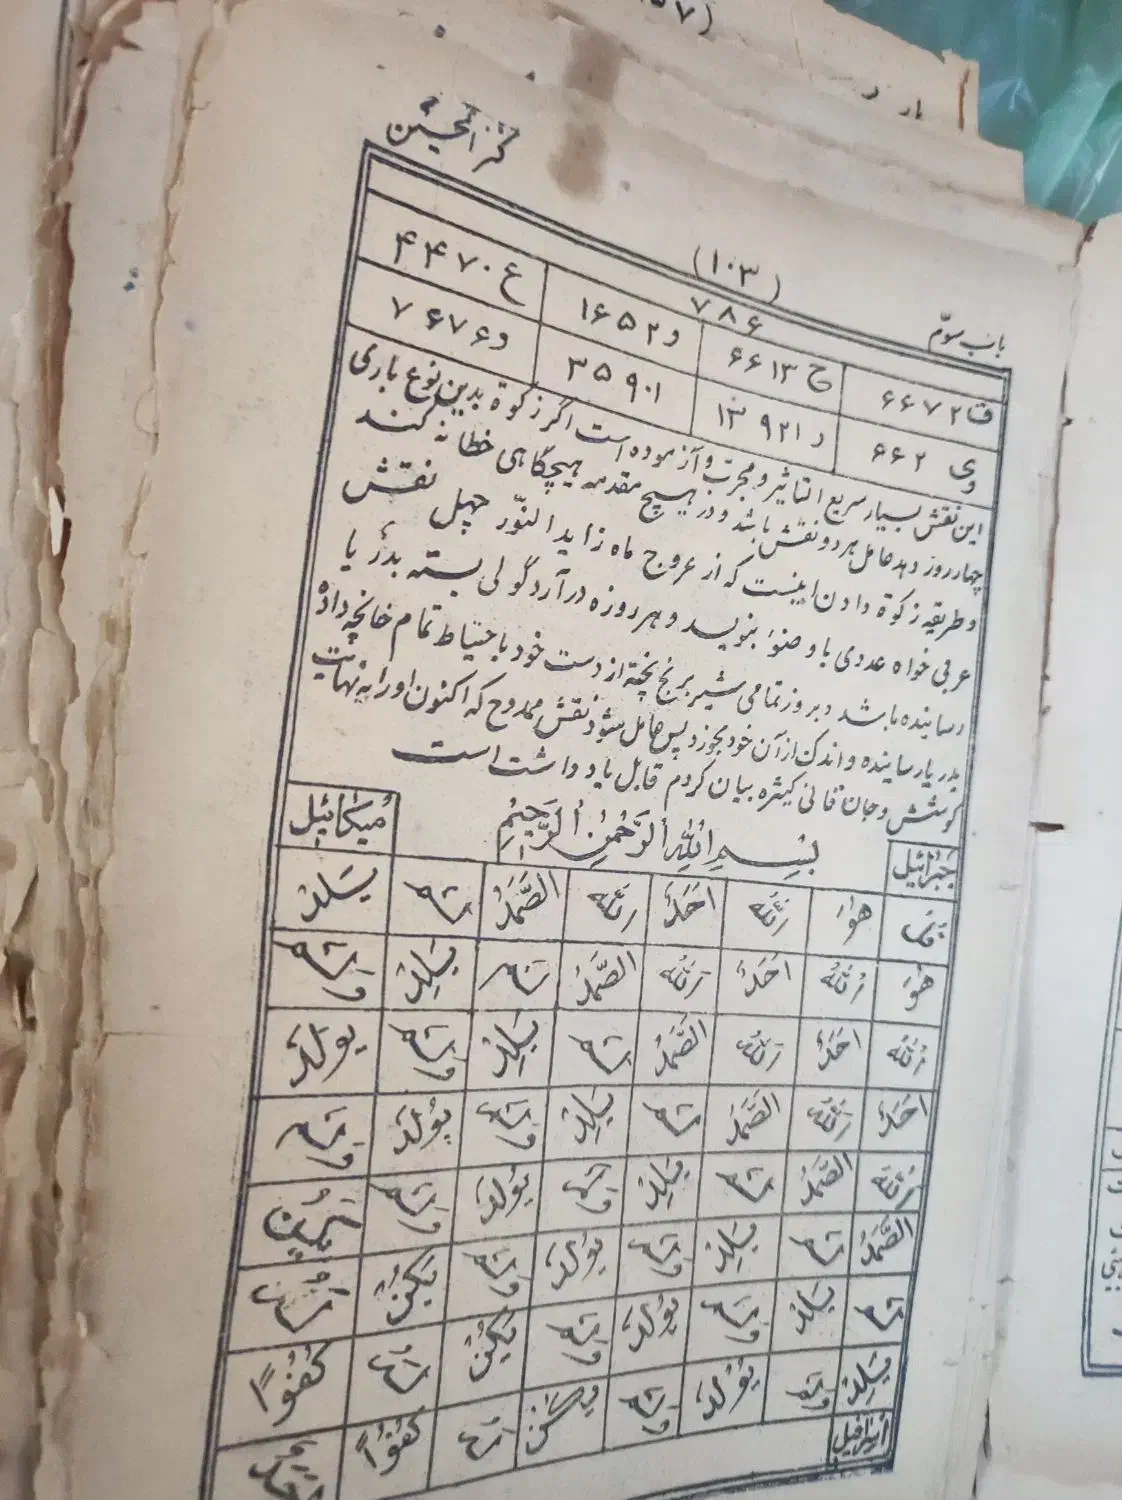 کنز الحسین
(۱۰۳)
باب سوّم
۷۸۶
ق ۶۶۷۲ ح ۶۶۱۳ و ۱۶۵۲ ع ۴۴۷۰
وی ۶۶۲ ر ۱۳۹۲۱ ۳۵۹۰۱ و ۷۶۷۶
این نقش بسیار سریع التاثیر و مجرّب و آزموده است اگر زکوة بدین نوع باری
چهار روز دهد عامل هر دو نقش باشد و در هیچ مقدمه هیچگاهی خطا نه کند
و طریقه زکوة دادن اینست که از عروج ماه زاید النّور چهل نقش
عربی خواه عددی با وضوء بنویسد و هر روزه در آرد گولی بسته بدریا
رساننده باشد و بروز تمامی شیر برنج پخته از دست خود باحتیاط تمام خانچه داده
بدریا رساننده و اندک از آن خود بخورد پس عامل شود نقش ممدوح که اکنون او را به نهایت
کوشش و جان فانی کثیره بیان کردم قابل یاد داشت است
جبرائیل بسم الله الرحمن الرحیم میکائیل
قل هو الله احد الله الصمد لم یلد
هو الله احد الله الصمد لم یلد ولم
الله احد الله الصمد لم یلد ولم یولد
احد الله الصمد لم یلد ولم یولد ولم
الله الصمد لم یلد ولم یولد ولم یکن
الصمد لم یلد ولم یولد ولم یکن له
لم یلد ولم یولد ولم یکن له کفوا
یلد ولم یولد ولم یکن له کفوا احد
اسرافیل